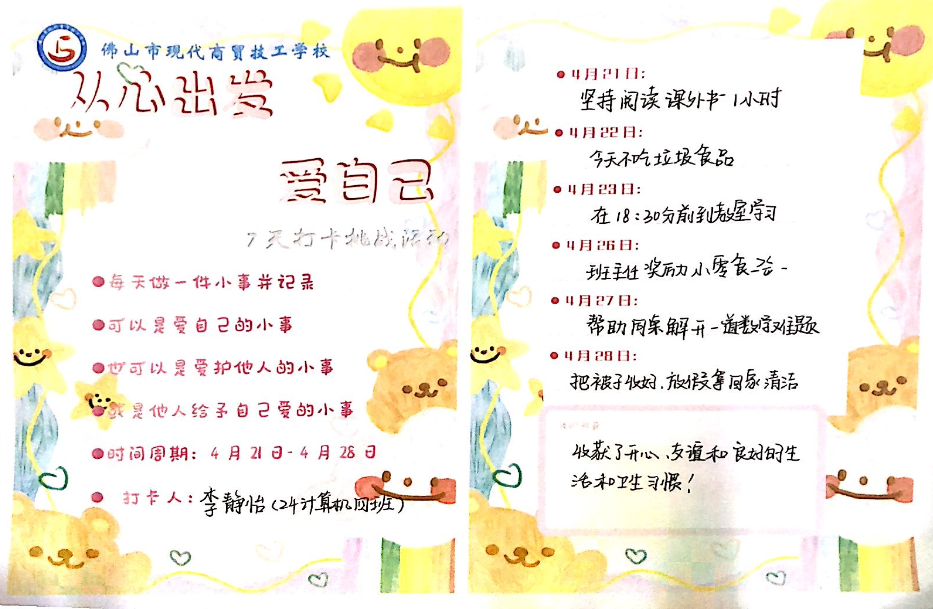 佛山市现代商贸技工学校
从心出发
爱自己
7天打卡挑战活动
每天做一件小事并记录
可以是爱自己的小事
也可以是爱护他人的小事
或是他人给予自己爱的小事
时间周期：4月21日-4月28日
打卡人：李静怡（24计算机四班）
4月21日：
坚持阅读课外书1小时
4月22日：
今天不吃垃圾食品
4月23日：
在18:30分前到教室学习
4月26日：
班主任奖励小零食一
4月27日：
帮助同桌解开一道数学难题
4月28日：
把被子收好，放假拿回家清洁
收获了开心、友谊和良好的生
活和卫生习惯！